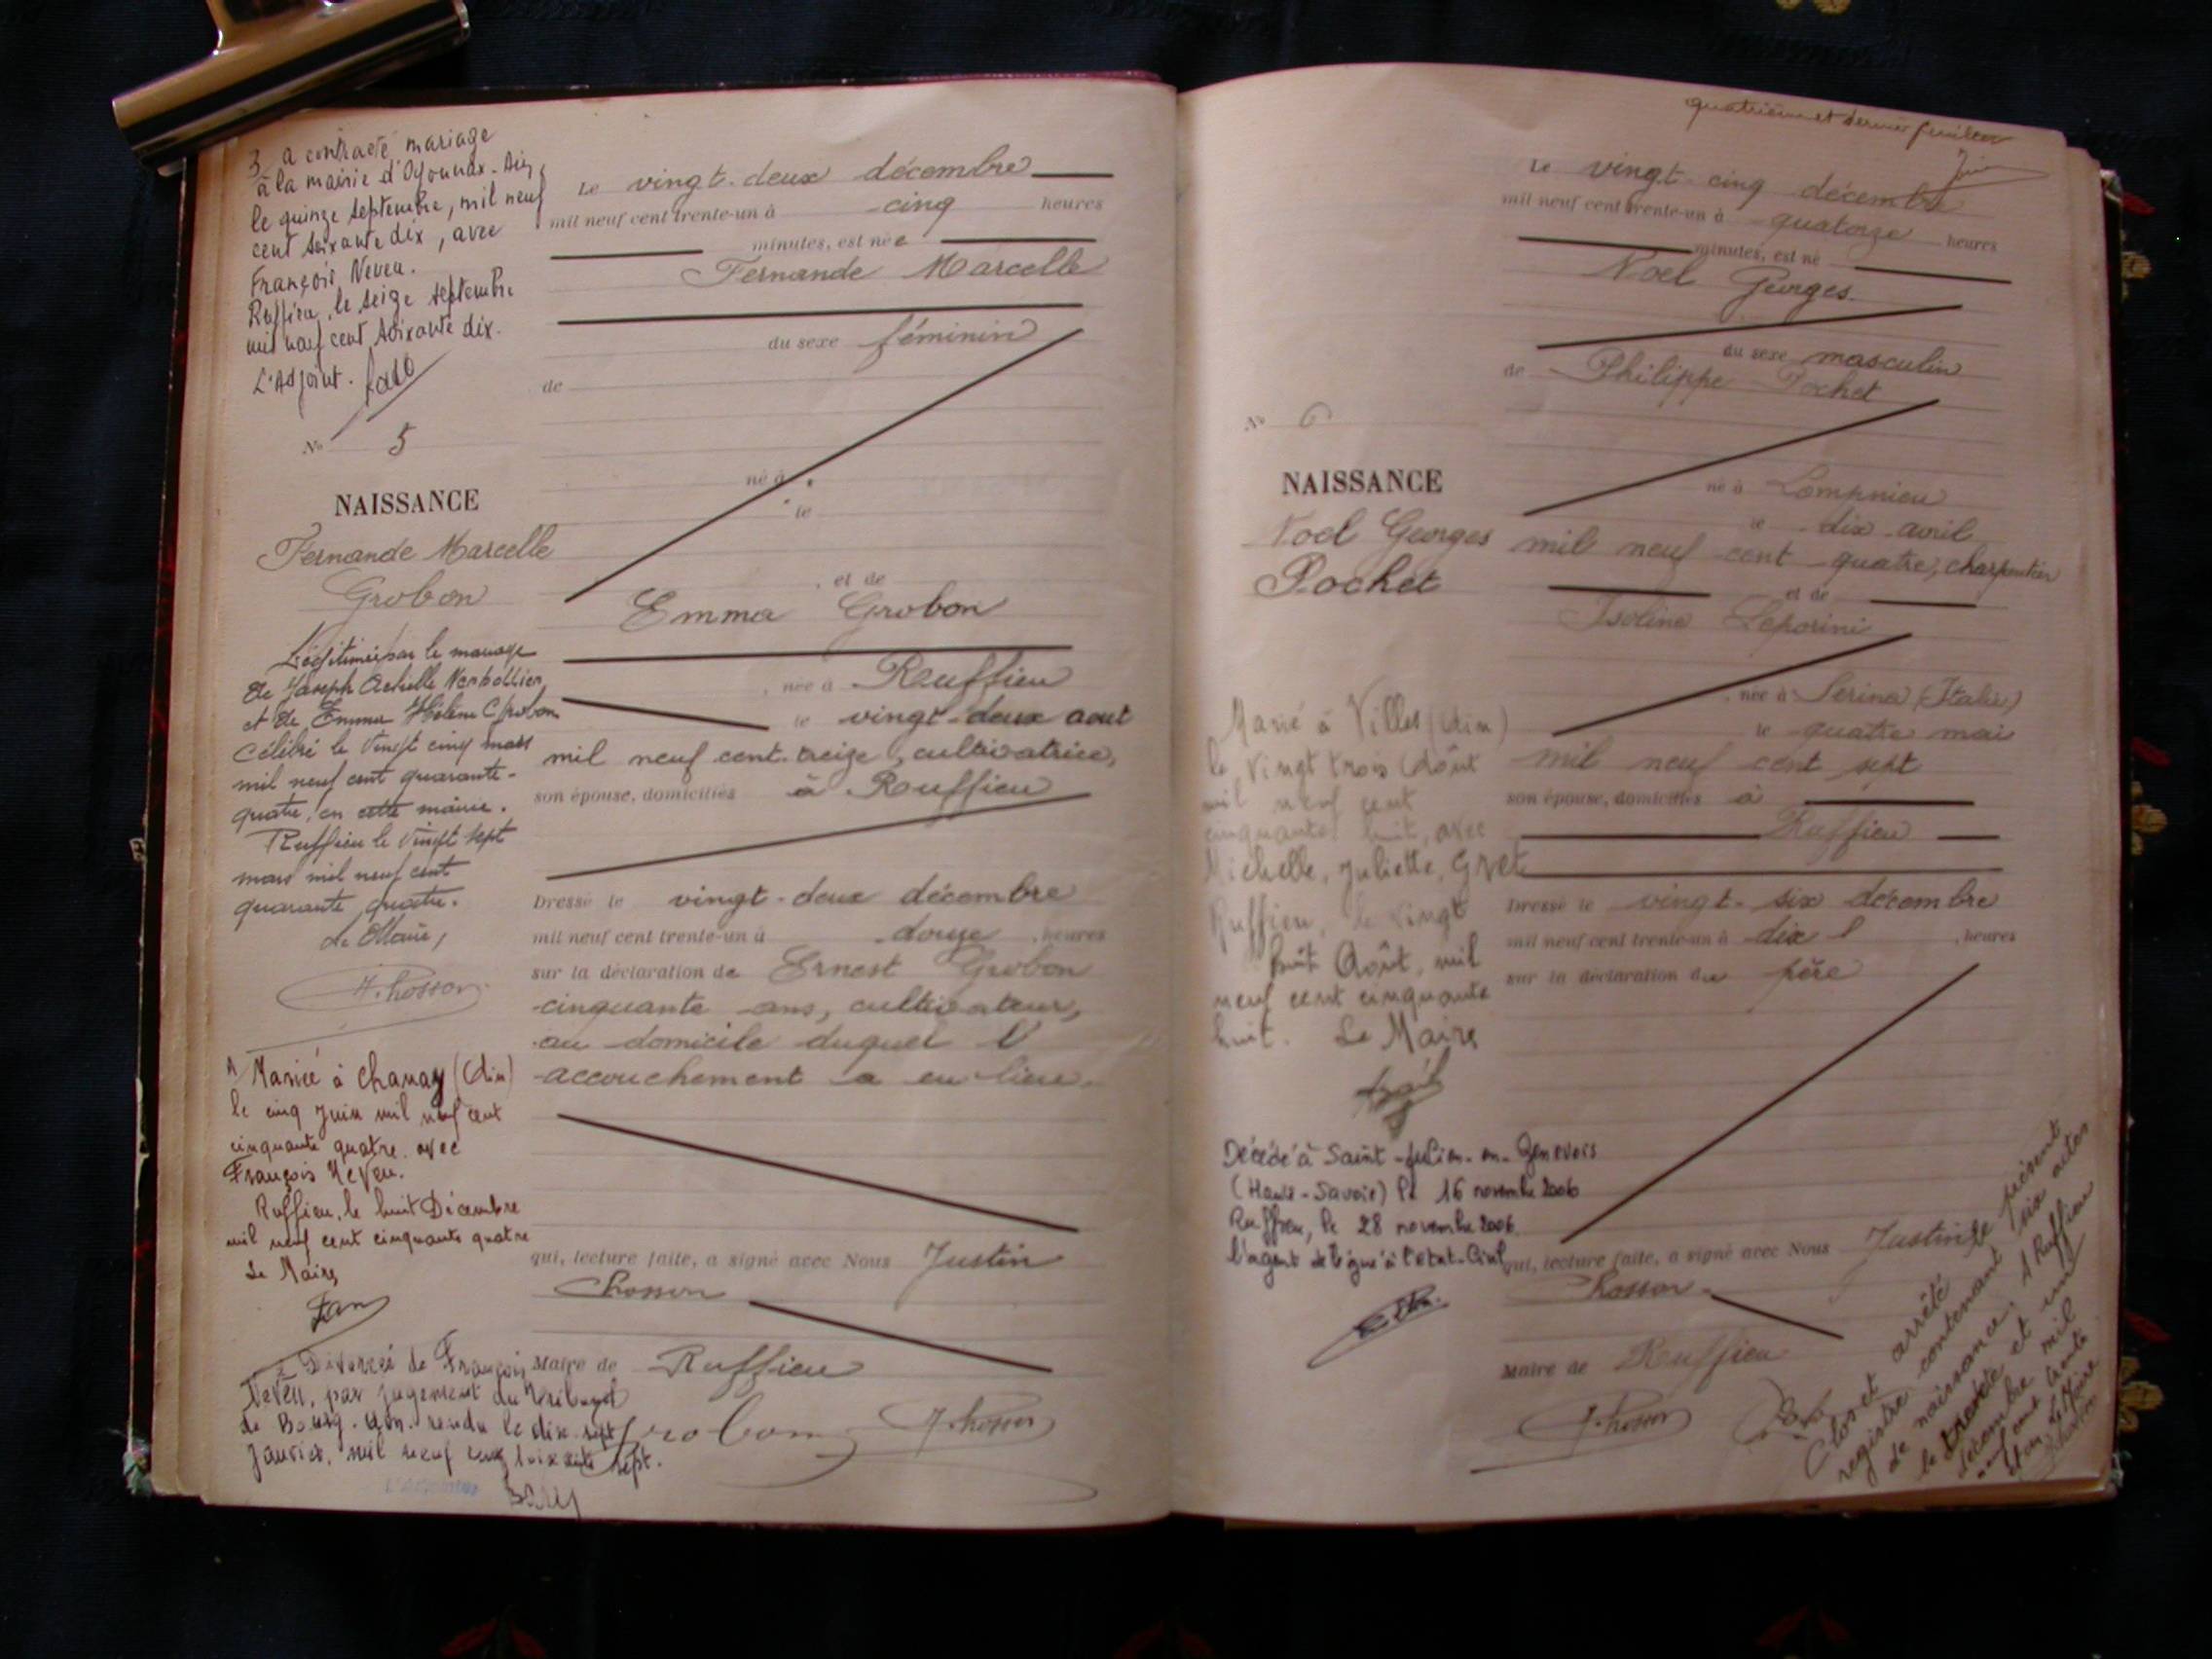 3 a contracté mariage
à la mairie d'Oyonnax-Ain,
le quinze septembre, mil neuf
cent soixante dix, avec
François Neveu.
Ruffieu, le seize septembre
mil neuf cent soixante dix.
L'Adjoint.
No 5
NAISSANCE
Fernande Marcelle
Grobon
Légitimée par le mariage
de Joseph Achille
et de Emma Hélène Grobon
célébré le vingt cinq mars
mil neuf cent quarante-
quatre, en cette mairie.
Ruffieu le vingt sept
mars mil neuf cent
quarante quatre.
Le Maire,
J. Chosson
1 Mariée à Chanay (Ain)
le cinq Juin mil neuf cent
cinquante quatre avec
François Neveu.
Ruffieu, le huit Décembre
mil neuf cent cinquante quatre
Le Maire
2 Divorcée de François
Neveu, par jugement du Tribunal
de Bourg-Ain. rendu le dix sept
Janvier, mil neuf cent soixante sept.
L'Adjoint
Le vingt-deux décembre
mil neuf cent trente-un à cinq heures
minutes, est née
Fernande Marcelle
du sexe féminin
de
né à
le
et de
Emma Grobon
née à Ruffieu
le vingt-deux aout
mil neuf cent treize, cultivatrice,
son épouse, domiciliés à Ruffieu
Dressé le vingt-deux décembre
mil neuf cent trente-un à douze heures
sur la déclaration de Ernest Grobon
cinquante ans, cultivateur,
au domicile duquel l'
accouchement a eu lieu.
qui, lecture faite, a signé avec Nous Justin
Chosson
Maire de Ruffieu
Grobon J. Chosson
quatrième et dernier feuillet
No 6
NAISSANCE
Noel Georges
Pochet
Marié à Villes (Ain)
le vingt trois Août
mil neuf cent
cinquante huit, avec
Michelle, Juliette, Gret
Ruffieu, le vingt
huit Août, mil
neuf cent cinquante
huit. Le Maire
Décédé à Saint-Julien-en-Genevois
(Haute-Savoie) le 16 novembre 2006
Ruffieu, le 28 novembre 2006.
l'agent délégué à l'état-Civil
Le vingt-cinq décembre
mil neuf cent trente-un à quatorze heures
minutes, est né
Noel Georges
du sexe masculin
de Philippe Pochet
né à Lompnieu
le dix avril
mil neuf cent quatre, charpentier
et de
Isolina Leporini
née à Serina (Italie)
le quatre mai
mil neuf cent sept
son épouse, domiciliés à
Ruffieu
Dressé le vingt-six décembre
mil neuf cent trente-un à dix heures
sur la déclaration du père
qui, lecture faite, a signé avec Nous Justin
Chosson
Maire de Ruffieu
J. Chosson
Clos et arrêté le présent
registre contenant six actes
de naissance. A Ruffieu
le trente et un
décembre mil
neuf cent trente
et un. Le Maire
J. Chosson